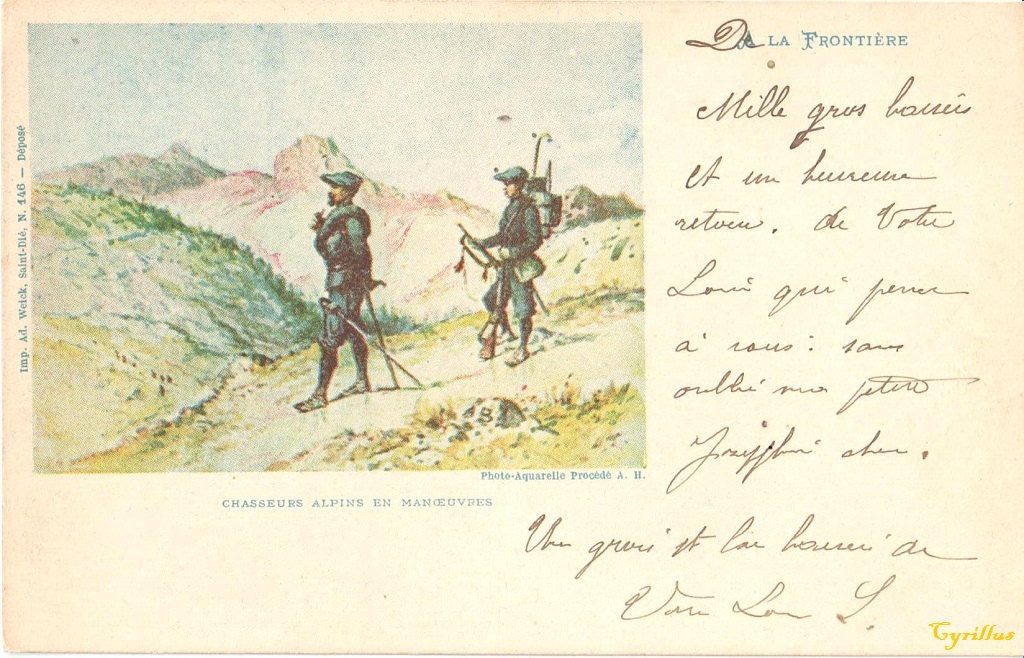 De LA FRONTIÈRE
Mille gros baisers
et un heureux
retour. de Votre
Louis qui pense
à vous: sans
oublié ma petite
Joséphine cher.
Un gros et bon baiser de
Votre Lou L.
Imp. Ad. Weick, Saint-Dié, N. 146 — Déposé
Photo-Aquarelle Procédé A. H.
CHASSEURS ALPINS EN MANŒUVRES
Cyrillus